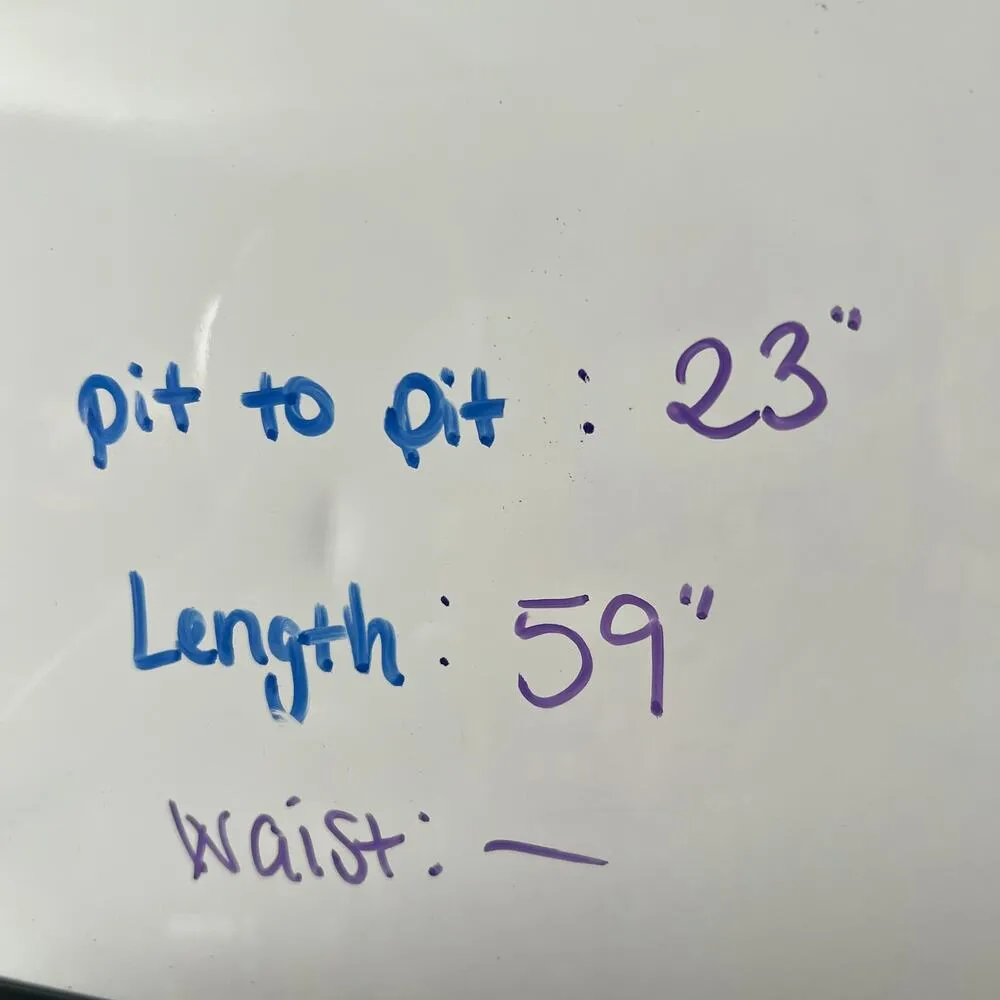 pit to pit : 23"
Length : 59"
Waist : —